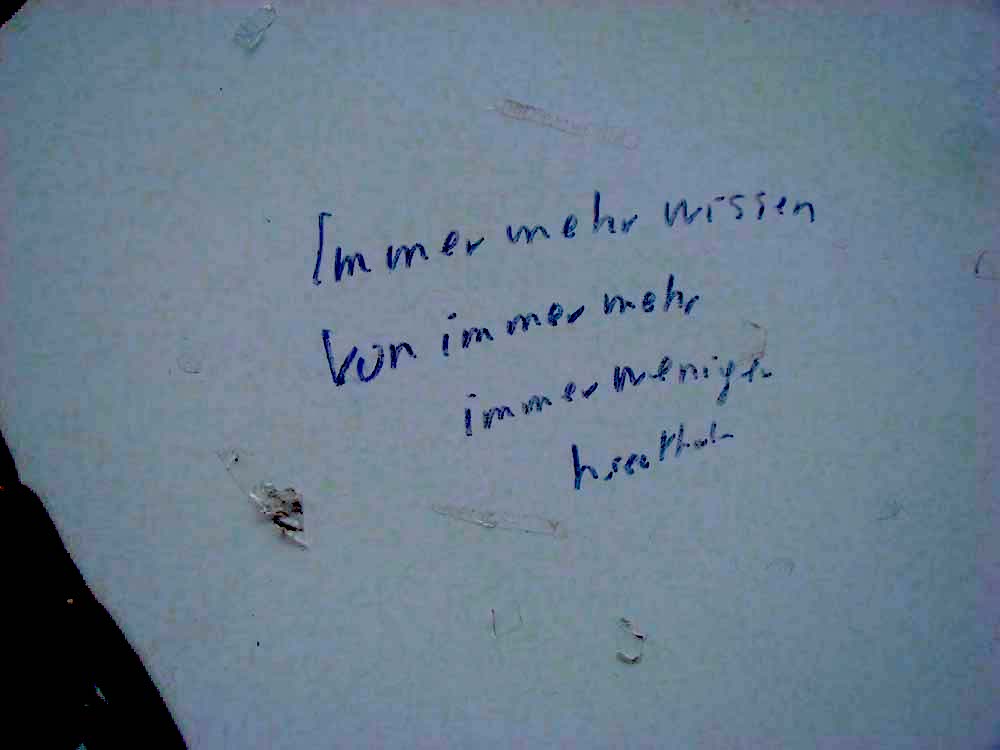 Immer mehr wissen
Von immer mehr
immer weniger